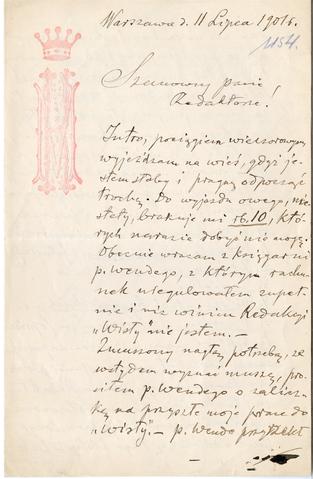 Warszawa d. 11 Lipca 1901 r.
1154.
Szanowny panie
Redaktorze!
Jutro, pociągiem wieczorowym,
wyjeżdżam na wieś, gdyż je-
stem słaby i pragnę odpocząć
trochę. Do wyjazdu owego, nie-
stety, brakuje mi rb. 10, któ-
rych narazie dobyć nie mogę.
Obecnie wracam z księgarni
p. Wendego, z którym rachu-
nek uregulowałem zupeł-
nie i nic winien Redakcji
"Wisły" nie jestem. —
Zmuszony nagłą potrzebą, ze
wstydem wyznać muszę, pro-
siłem p. Wendego o zalicz-
kę na przyszłe moje prace do
"Wisły". — p. Wende przyrzekł